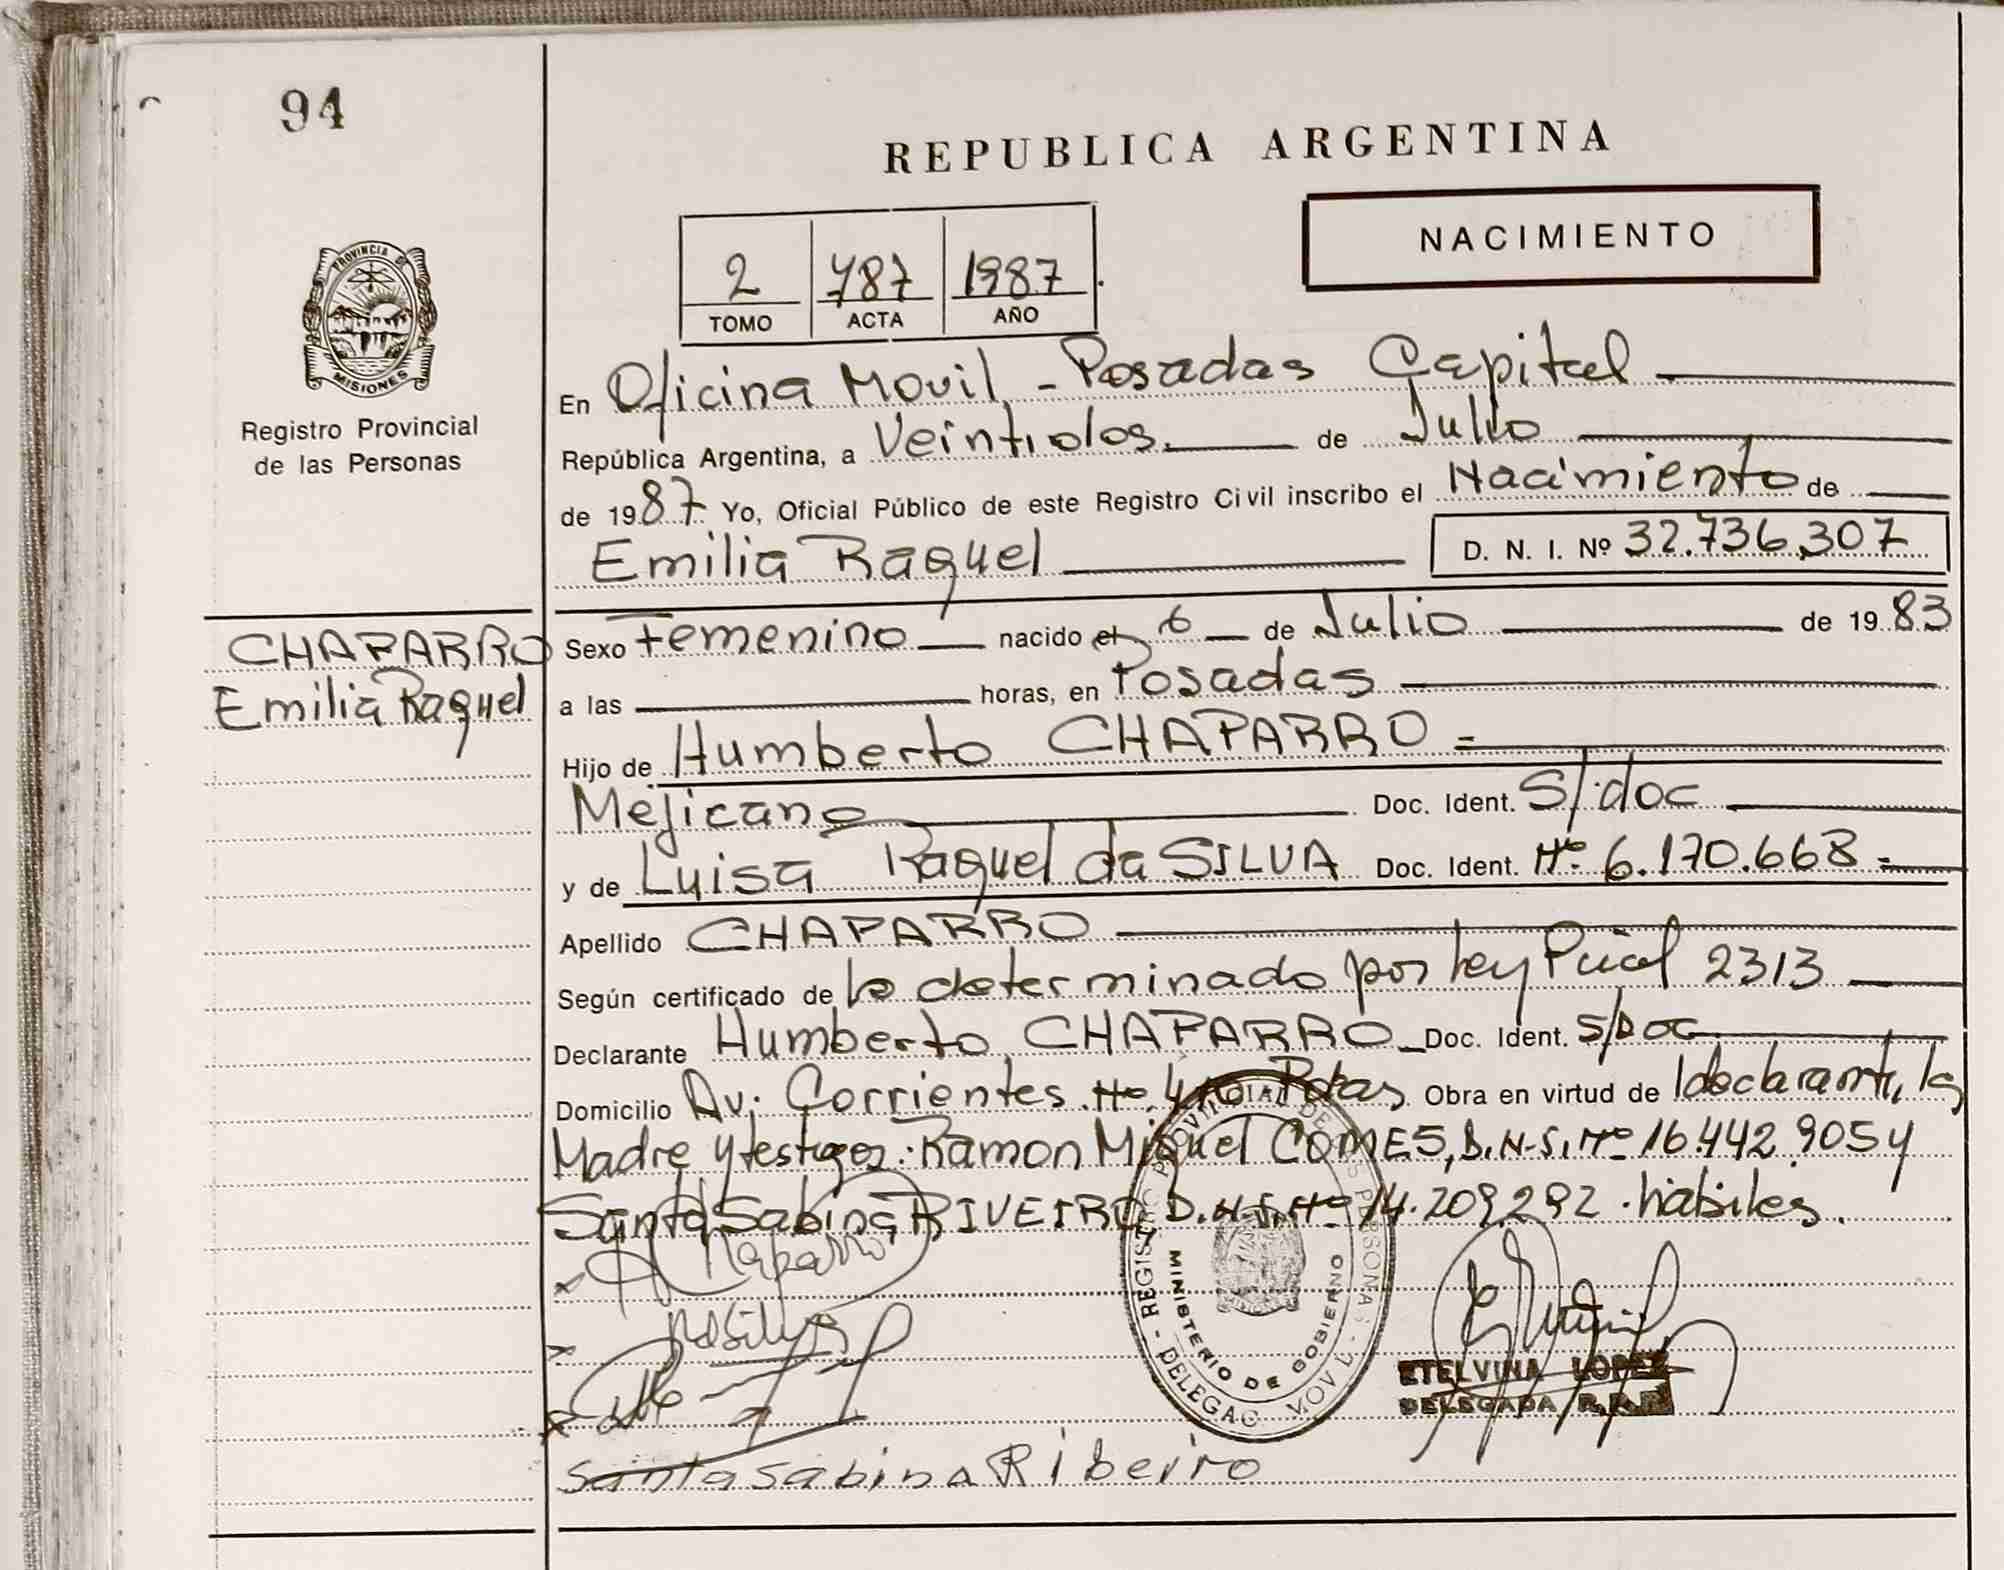 94
REPUBLICA ARGENTINA
NACIMIENTO
2 787 1987
TOMO ACTA AÑO
PROVINCIA D
MISIONES
Registro Provincial
de las Personas
En Oficina Movil - Posadas Capital
República Argentina, a Veintidos de Julio
de 1987 Yo, Oficial Público de este Registro Civil inscribo el Nacimiento de
Emilia Raquel D. N. I. Nº 32.736.307
CHAPARRO
Emilia Raquel
Sexo Femenino nacido el 6 de Julio de 1983
a las horas, en Posadas
Hijo de Humberto CHAPARRO =
Mejicano Doc. Ident. S/doc
y de Luisa Raquel da SILVA Doc. Ident. Nº 6.170.668 =
Apellido CHAPARRO
Según certificado de lo determinado por ley Pcial 2313
Declarante Humberto CHAPARRO Doc. Ident. S/Doc
Domicilio Av. Corrientes Nº Pdas Obra en virtud de declarante, la
Madre y testigos: Ramon Miguel COMES, D.N.I. Nº 16.442.905 y
Santa Sabina RIVEIRO D.N.I. Nº 14.209.292 habiles.
Chaparro
REGISTRO PROVINCIAL DE LAS PERSONAS - DELEGAC MOVIL -
MINISTERIO DE GOBIERNO
ETELVINA LOPEZ
DELEGADA R.P.P.
Santa Sabina Ribeiro